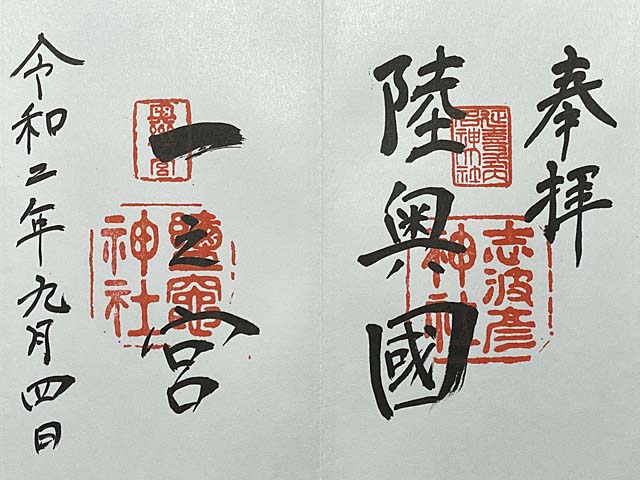 奉拝
陸奥國
志波彦
神社
一之宮
鹽竈
神社
令和二年九月四日